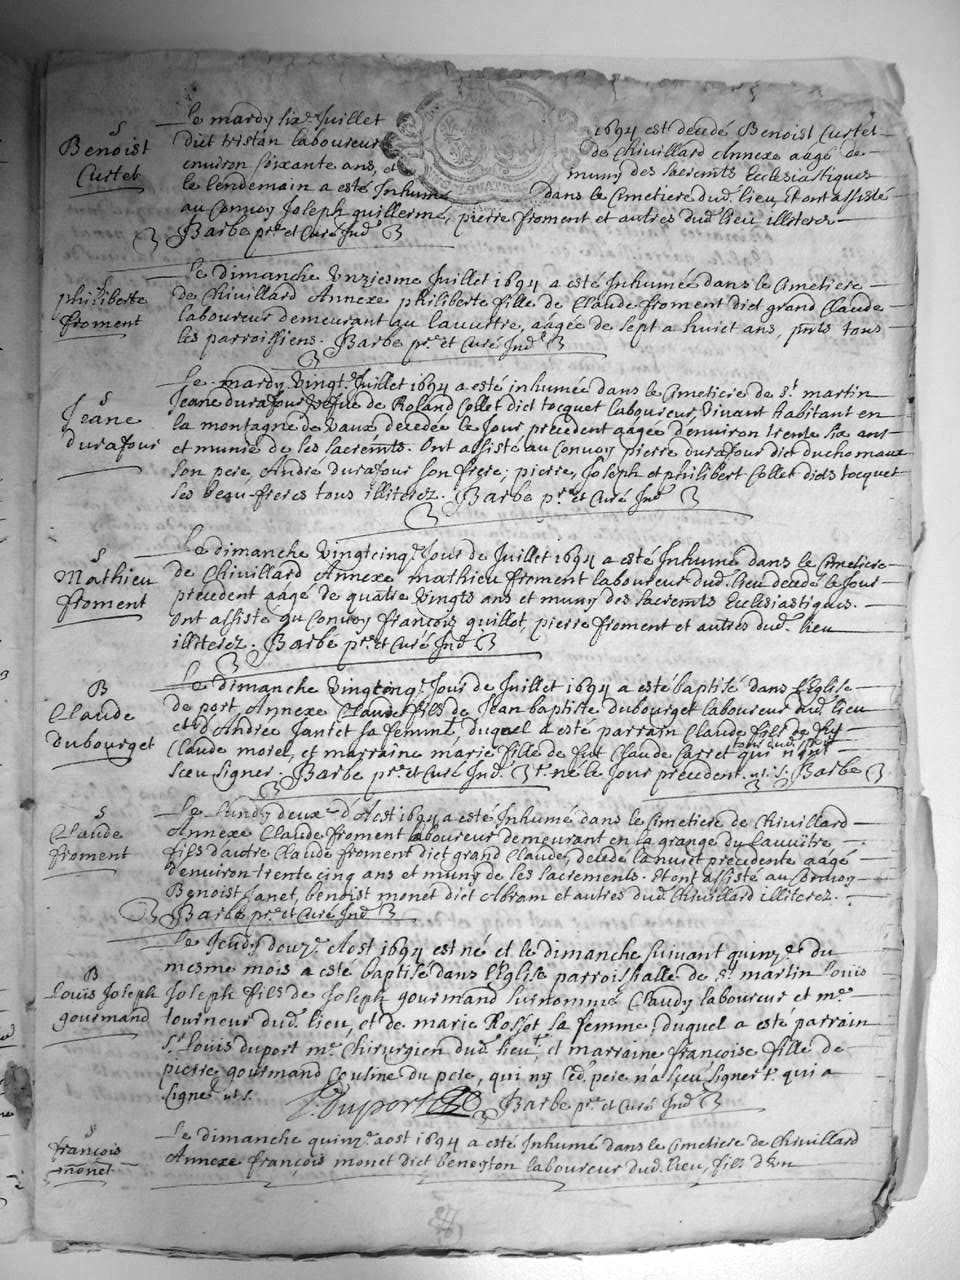 S
Benoist
Curtet
Le mardy six.e Juillet 1694 est decedé Benoist Curtet
dict tristan laboureur de Chivillard Annexe aagé de
environ soixante ans, et muny des sacremts Ecclesiastiques
le lendemain a esté Inhumé dans le Cimetiere dud. lieu, Et ont assisté
au Convoy Joseph guillermé, pierre froment et autres dud. lieu illiterez
Barbe pr.e et Curé Ind.
S
philiberte
froment
Le dimanche Unziesme Juillet 1694 a esté Inhumée dans le Cimetiere
de Chivillard Annexe philiberte fille de Claude froment dict grand Claude
laboureur demeurant au lauvitre, aagée de sept a huict ans, pnts tous
les parroissiens. Barbe pr.e et Curé Ind.
S
Jeane
durafour
Le mardy Vingt.e Juillet 1694 a esté inhumée dans le Cimetiere de S.t martin
Jeane durafour vefue de Roland Collet dict tocquet laboureur, Vivant habitant en
la montagne de Vaux decedée le Jour precedent aagée d'environ trente six ans
et munie de les sacremts. Ont assisté au Convoy pierre durafour dict duchomaux
son pere, André durafour son frere; pierre, Joseph et philibert Collet dicts tocquet
ses beau-freres tous illiterez. Barbe pr.e et Curé Ind.
S
Mathieu
froment
Le dimanche Vingtcinq.e Jour de Juillet 1694 a esté Inhumé dans le Cimetiere
de Chivillard Annexe mathieu froment laboureur dud. lieu decedé le Jour
precedent aagé de quatre Vingts ans et muny des sacremts Ecclesiastiques.
Ont assisté au Convoy françois quillet, pierre froment et autres dud. lieu
illiterez. Barbe pr.e et Curé Ind.
B
Claude
dubourget
Le dimanche Vingtcinq.e Jour de Juillet 1694 a esté baptisé dans l'Eglise
de port, Annexe Claude fils de Jean baptiste dubourget laboureur dud. lieu
et d'Andrée Jantet sa femme, duquel a esté parrain Claude fils de fut
Claude morel, et marraine marie fille de fut Claude Carret qui n'ont
sceu signer. Barbe pr.e et Curé Ind. né le Jour precedent. ut. s. Barbe
S
Claude
froment
Le Lundy deux.e d'Aost 1694 a esté Inhumé dans le Cimetiere de Chivillard
Annexe Claude froment laboureur demeurant en la grange du Lauvitre
fils d'autre Claude froment dict grand Claude, decedé la nuict precedente aagé
d'environ trente cinq ans et muny de les sacrements. Et ont assisté au Convoy
Benoist Janet, benoist monet dict Abram et autres dud. Chivillard illiterez.
Barbe pr.e et Curé Ind.
B
Louis Joseph
gourmand
Le Jeudy douz.e Aost 1694 est né et le dimanche suivant quinz.e du
mesme mois a esté baptisé dans l'Eglise parroissialle de S.t martin Louis
Joseph fils de Joseph gourmand surnommé Claudy laboureur et m.e
tourneur dud. lieu, et de marie Rosset sa femme, duquel a esté parrain
S.r Louis duport m.e Chirurgien dud. lieu, et marraine françoise fille de
pierre gourmand Cousine du pere, qui ny led. pere n'a sceu signer qui a
signé ut. s. L. Duport Barbe pr.e et Curé Ind.
S
françois
monet
Le dimanche quinz.e aost 1694 a esté Inhumé dans le Cimetiere de Chivillard
Annexe françois monet dict beneyton laboureur dud. lieu, fils d'